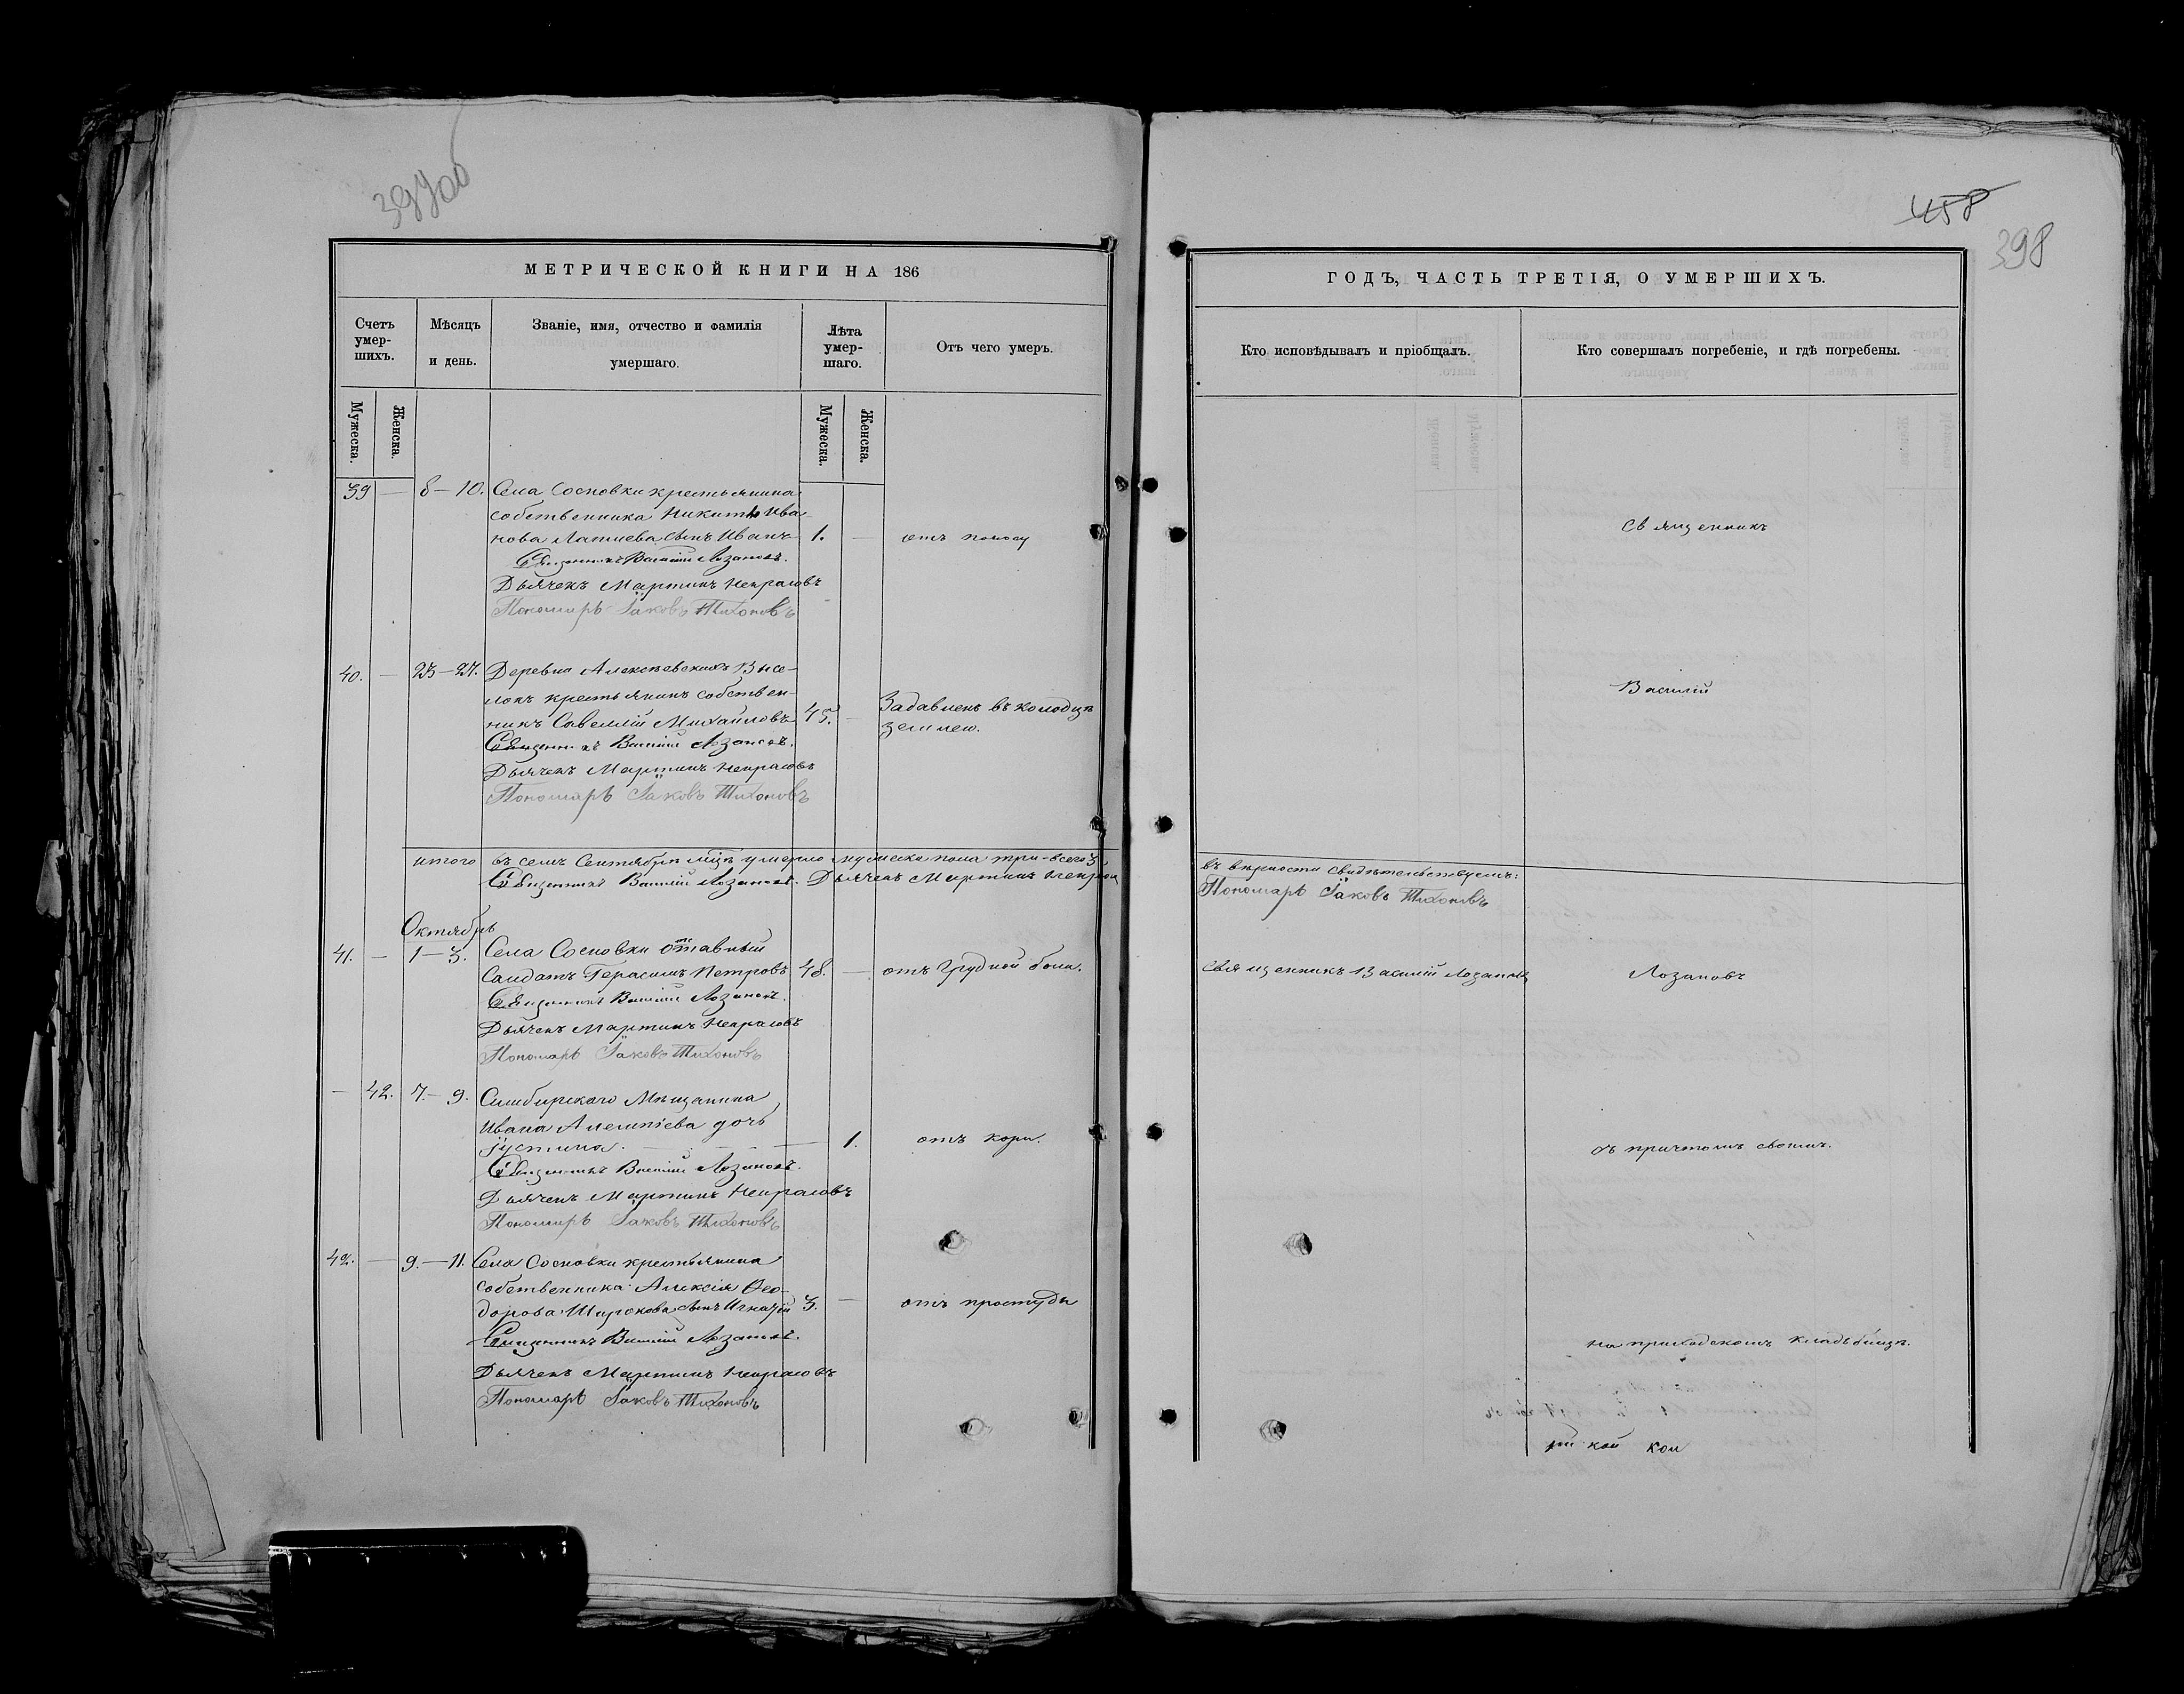 397об
МЕТРИЧЕСКОЙ КНИГИ НА 186
Счетъ умер-шихъ.
Мѣсяцъ и день.
Званіе, имя, отчество и фамилія умершаго.
Лѣта умер-шаго.
Отъ чего умеръ.
Мужеска.
Женска.
Мужеска.
Женска.
39 — 8–10. Села Сосновки крестьянина
собственника Никиты Ива-
нова Лапшева сынъ Иванъ 1. — отъ поносу
Священникъ Василій Лозановъ.
Дьячекъ Мартинъ Некрасовъ
Пономарь Іаковъ Тихоновъ
40. — 25–27. Деревни Алексѣевскихъ Высе-
локъ крестьянинъ собствен-
никъ Савеллій Михайловъ 45. — Задавленъ въ колодцѣ
землею.
Священникъ Василій Лозановъ.
Дьячекъ Мартинъ Некрасовъ
Пономарь Іаковъ Тихоновъ
итого въ семъ Сентябрѣ мцѣ умерло мужеска пола три – всего 3
Священникъ Василій Лозановъ. Дьячекъ Мартинъ Некрасов
Октябрь
41. — 1–3. Села Сосновки отставный
Салдатъ Герасимъ Петровъ 48. — отъ грудной боли.
Священникъ Василій Лозановъ.
Дьячекъ Мартинъ Некрасовъ
Пономарь Іаковъ Тихоновъ
— 42. 7.–9. Симбирскаго Мѣщанина
Ивана Алемпіева дочь
Іустина. — 1. отъ кори.
Священникъ Василій Лозановъ.
Дьячекъ Мартинъ Некрасовъ
Пономарь Іаковъ Тихоновъ
42. — 9.–11. Села Сосновки крестьянина
собственника Алексія Ѳео-
дорова Широкова сынъ Игнатій 3. — отъ простуды
Священникъ Василій Лозановъ.
Дьячекъ Мартинъ Некрасовъ
Пономарь Іаковъ Тихоновъ
458
398
ГОДЪ, ЧАСТЬ ТРЕТІЯ, О УМЕРШИХЪ.
Кто исповѣдывалъ и пріобщалъ.
Кто совершалъ погребеніе, и гдѣ погребены.
Священникъ
Василій
въ вѣрности свидѣтельствуемъ:
Пономарь Іаковъ Тихоновъ
Священникъ Василій Лозановъ
Лозановъ
съ причтомъ своимъ.
на приходскомъ кладьбищѣ.
кой кон